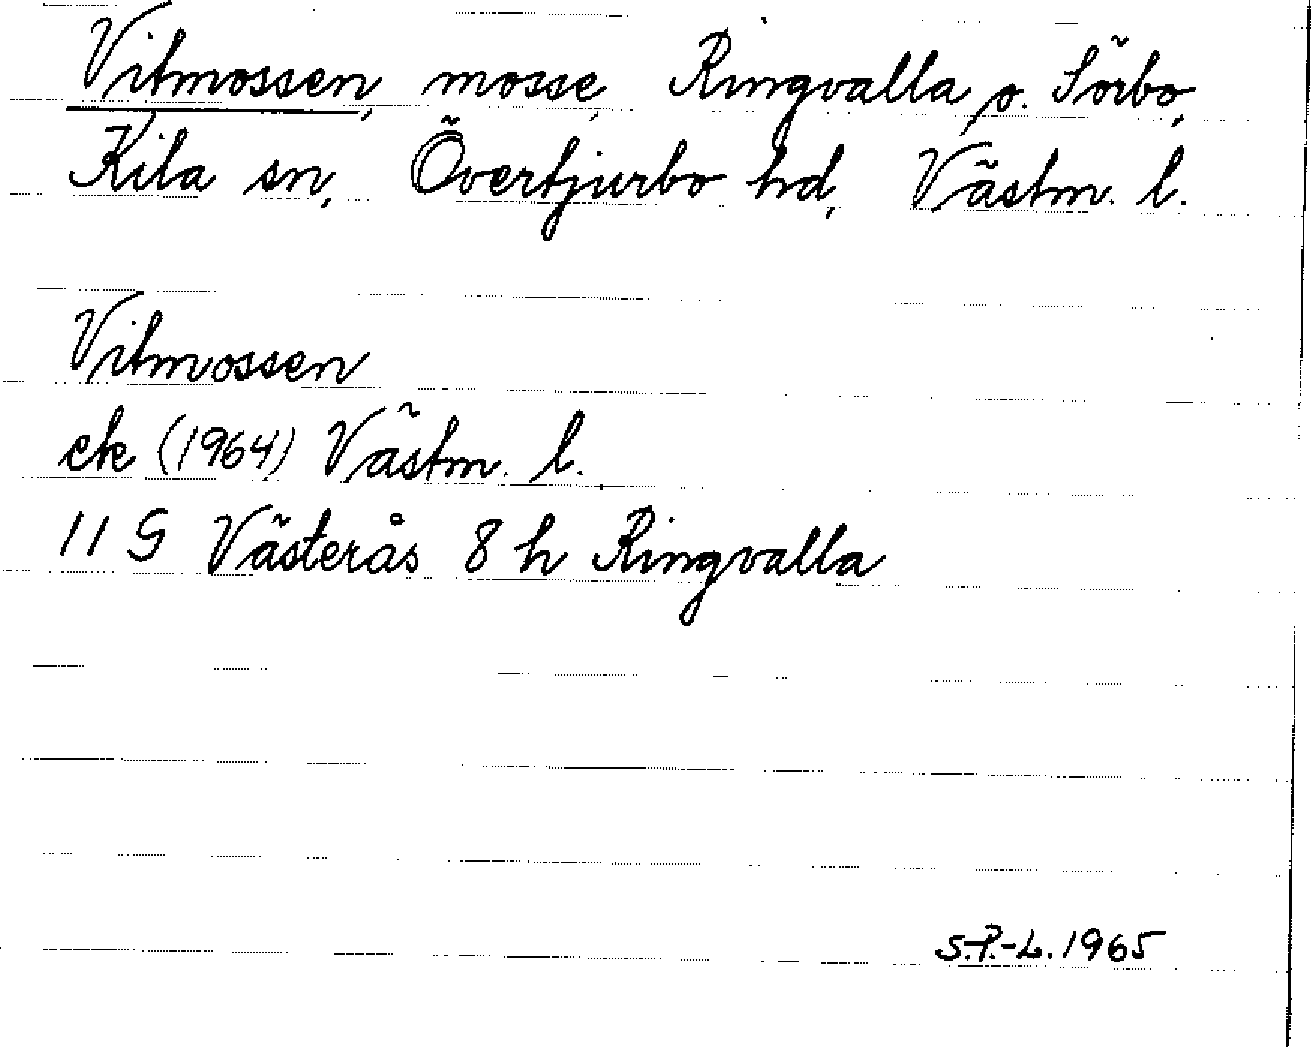 Vitmossen, mosse, Ringvalla o. Sörbo,
Kila sn, Övertjurbo hd, Västm. l.
Vitmossen
ek (1964) Västm. l.
11 G Västerås 8 h Ringvalla
S.P.-L. 1965